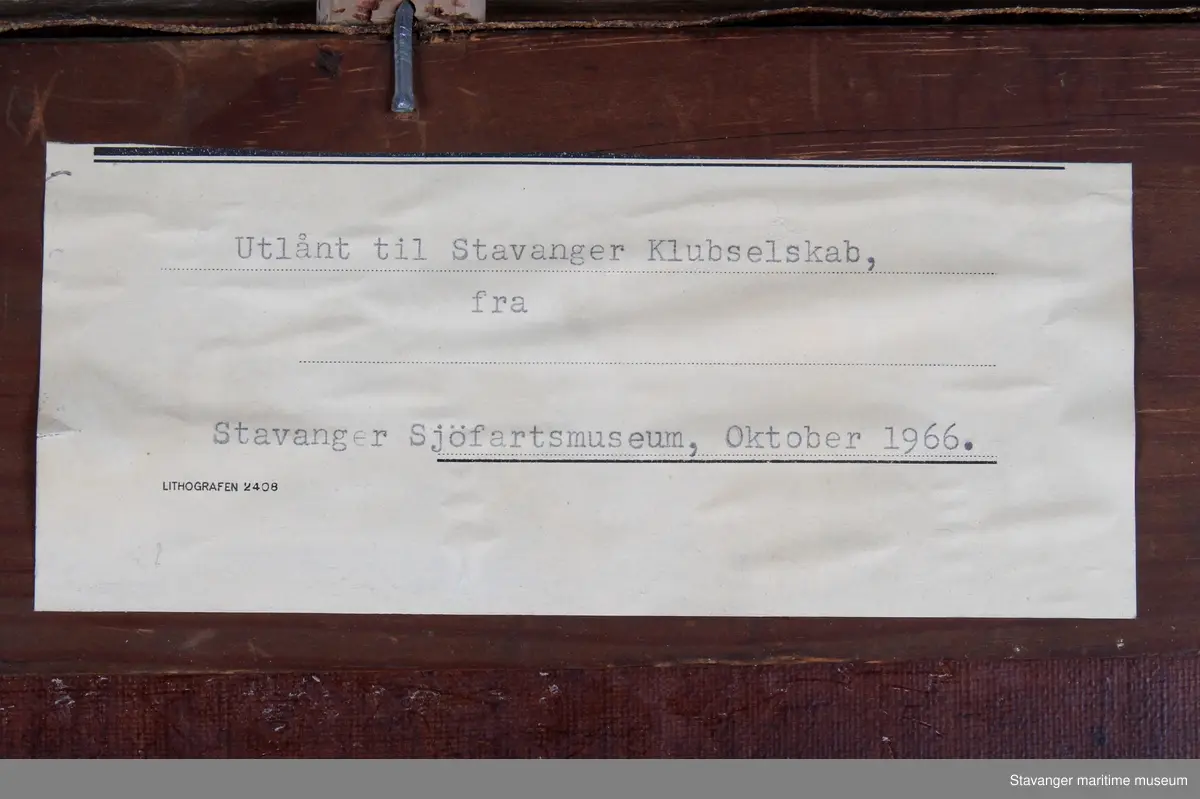 Utlånt til Stavanger Klubselskab,
fra
Stavanger Sjöfartsmuseum, Oktober 1966.
LITHOGRAFEN 2408
Stavanger maritime museum